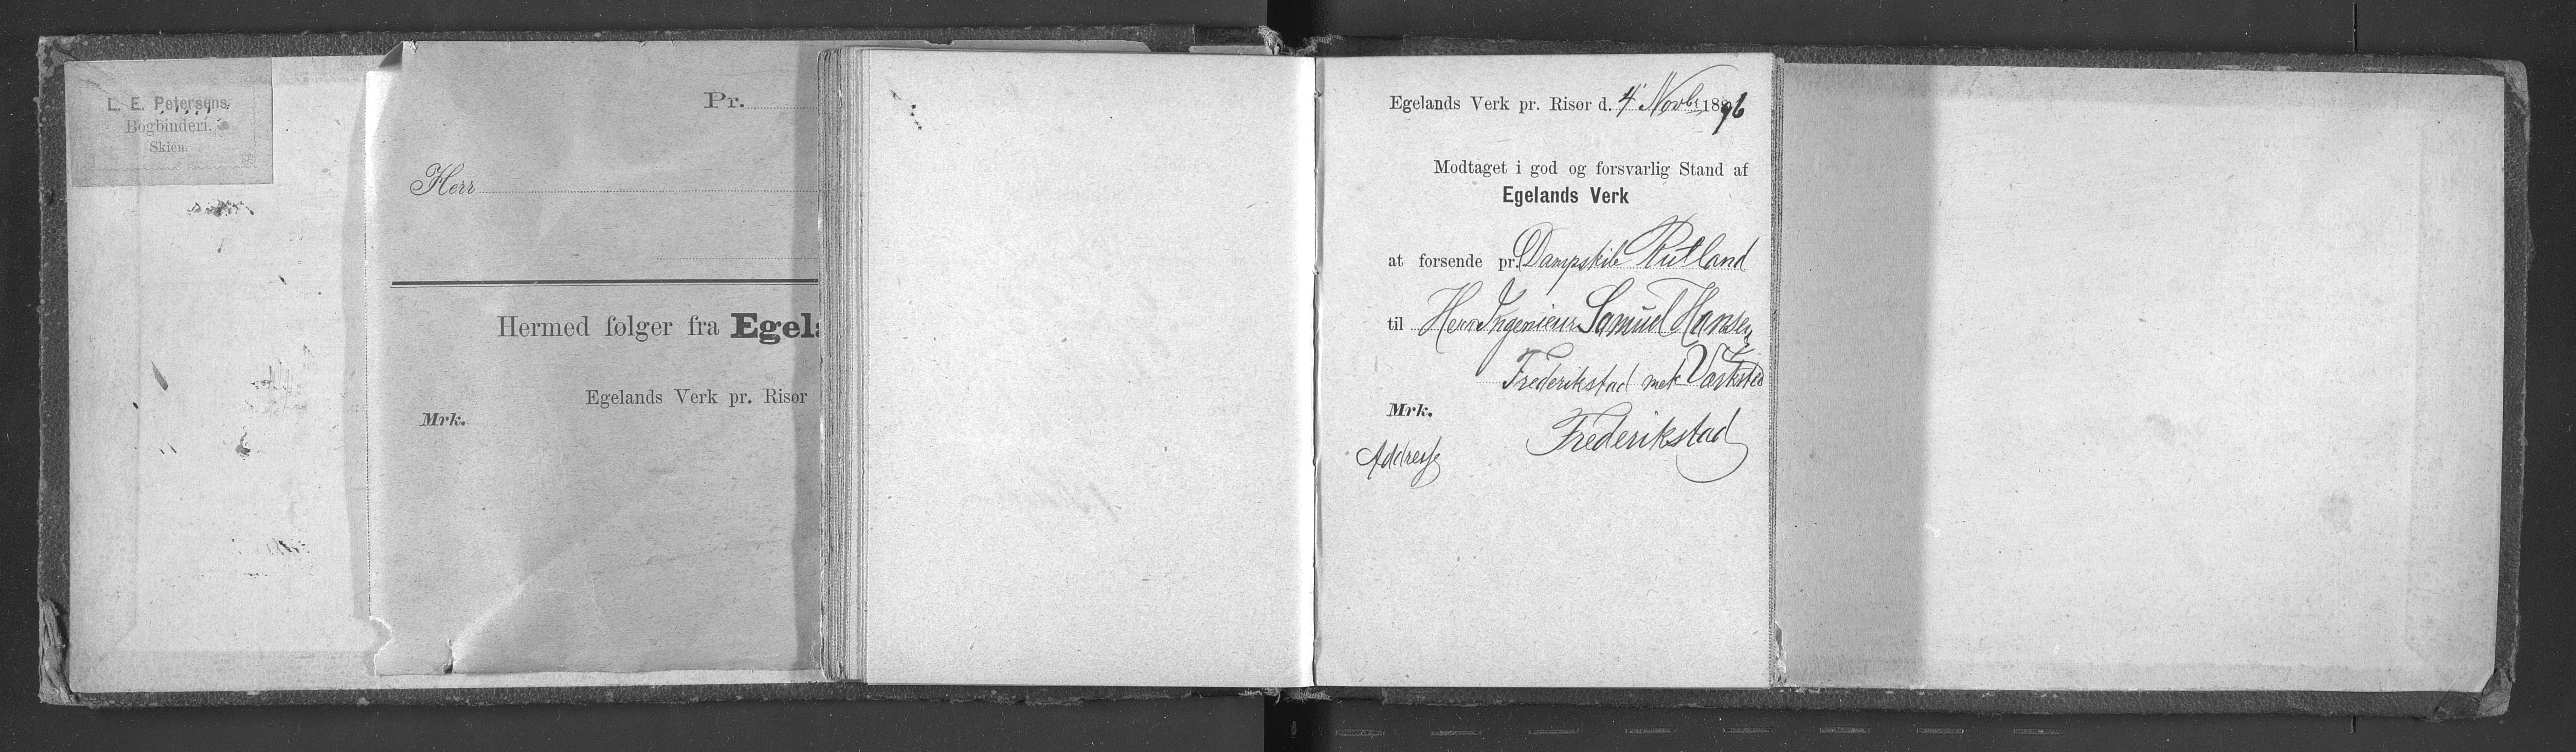 L. E. Petersens
Bogbinderi,
Skien.
Pr.
Herr
Hermed følger fra Egela
Egelands Verk pr. Risør
Mrk.
Egelands Verk pr. Risør d. 4' Novbr 1896
Modtaget i god og forsvarlig Stand af
Egelands Verk
at forsende pr. Dampskib Rutland
til Herr Ingeniеur Samuel Hansen
Frederikstad mek Værksted
Mrk.
Frederikstad
Addresse